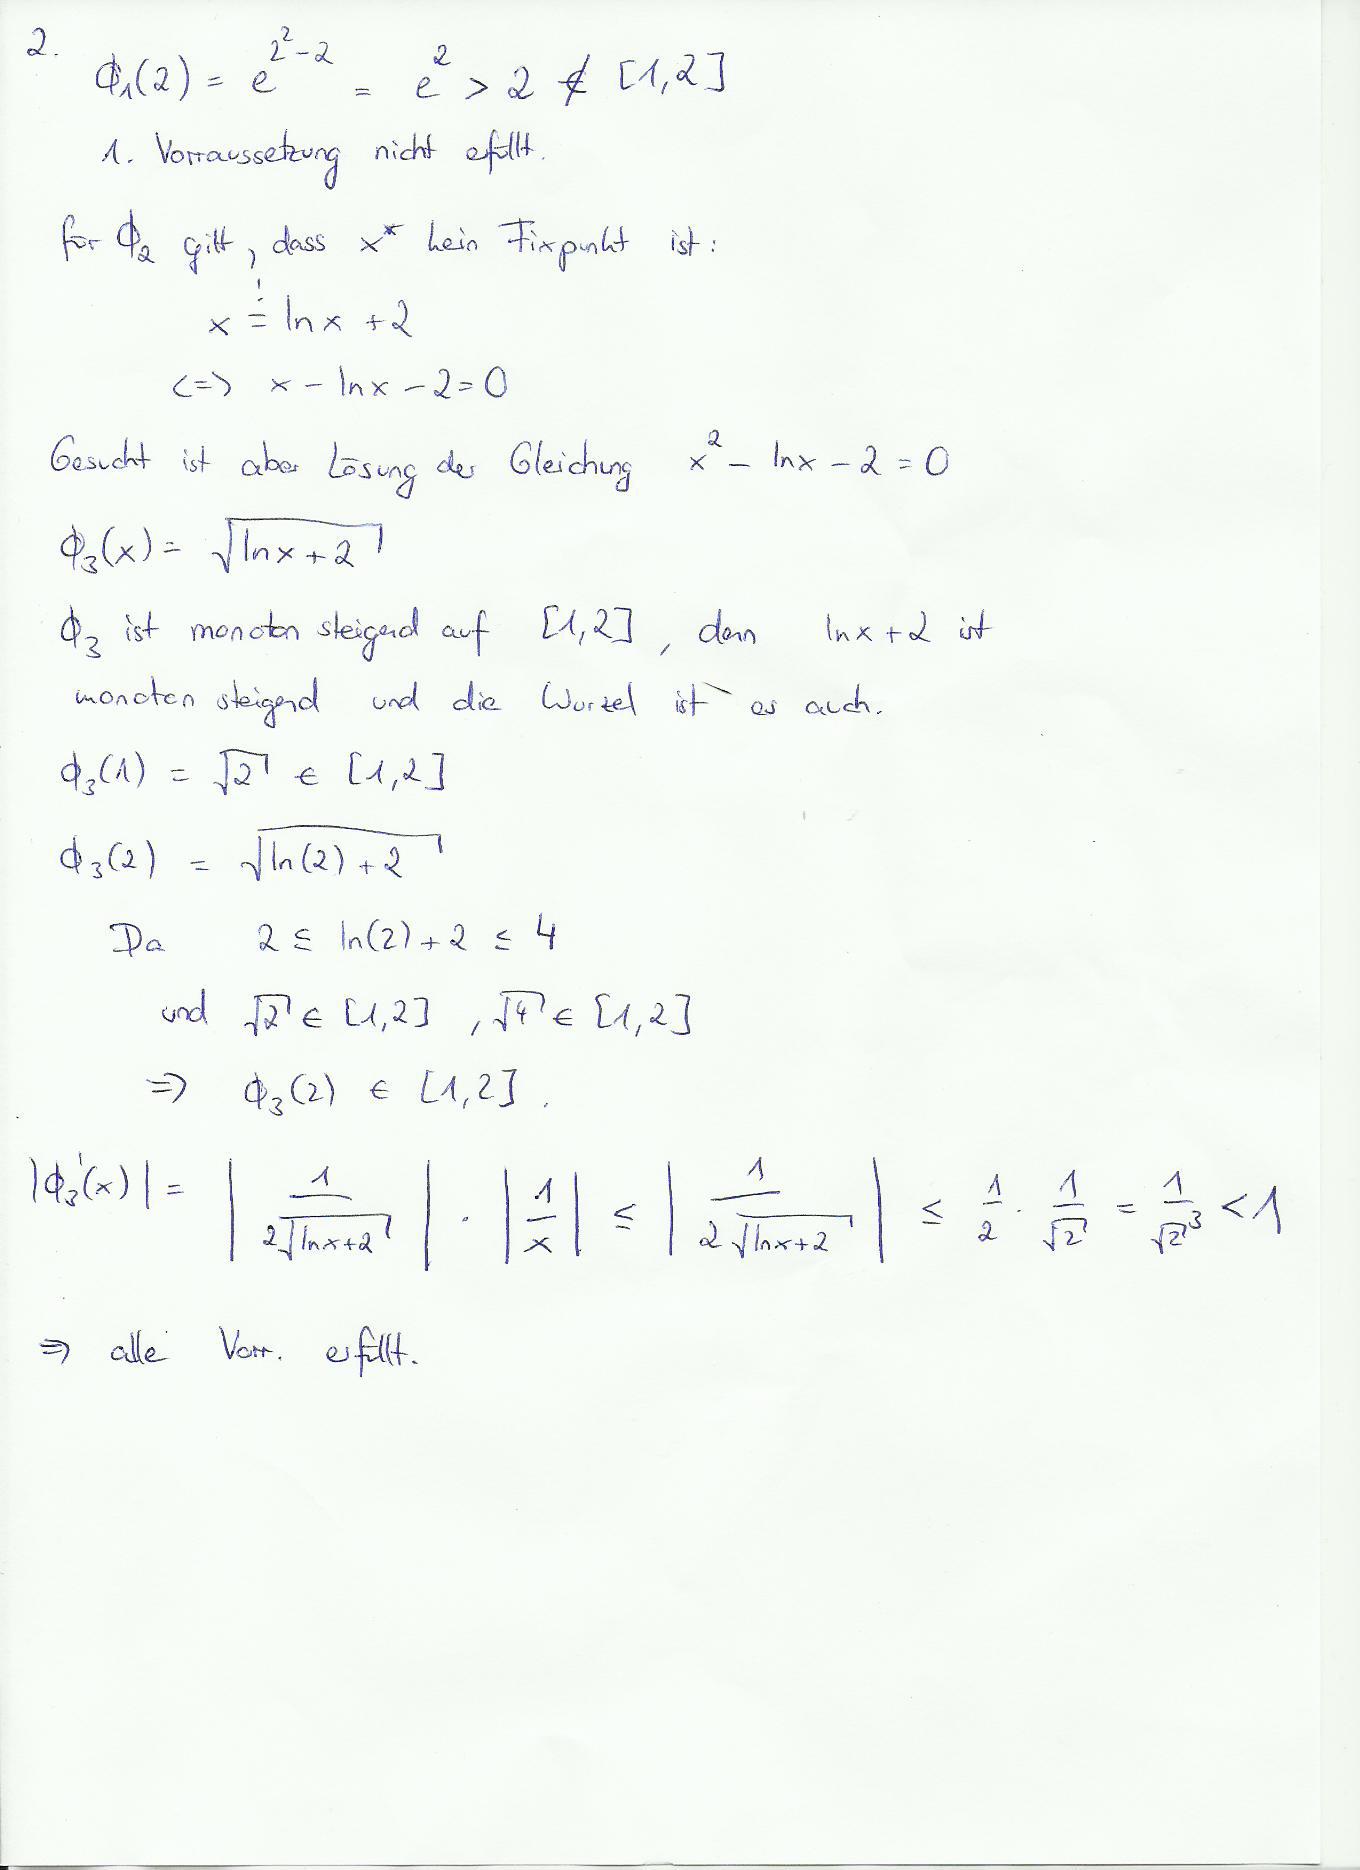 2. ϕ₁(2) = e^(2²-2) = e² > 2 ∉ [1,2]
1. Vorraussetzung nicht efüllt.
für ϕ₂ gilt, dass x* kein Fixpunkt ist:
x =! ln x + 2
<=> x - ln x - 2 = 0
Gesucht ist aber Lösung der Gleichung x² - ln x - 2 = 0
ϕ₃(x) = √(ln x + 2)
ϕ₃ ist monoton steigend auf [1,2], denn ln x + 2 ist
monoton steigend und die Wurzel ist es auch.
ϕ₃(1) = √2 ∈ [1,2]
ϕ₃(2) = √(ln(2) + 2)
Da 2 ≤ ln(2) + 2 ≤ 4
und √2 ∈ [1,2], √4 ∈ [1,2]
=> ϕ₃(2) ∈ [1,2].
|ϕ₃'(x)| = |1/(2√(ln x + 2))| · |1/x| ≤ |1/(2√(ln x + 2))| ≤ 1/2 · 1/√2 = 1/√2³ < 1
=> alle Vorr. erfüllt.